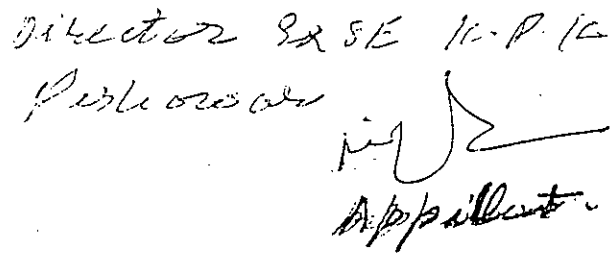 Director E&SE K.P.K
Peshawar
Appellant.